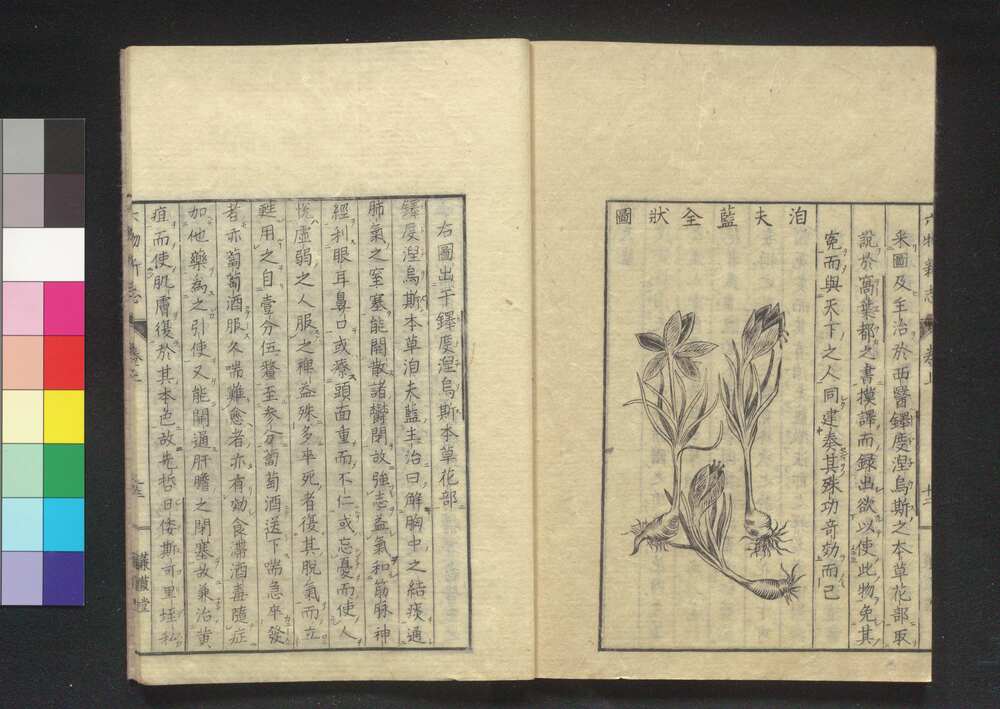 采圖及主治於西醫鐸度涅烏斯之本草花部取
說於窩葉都之書摸譯而録出欲以使此物免其
寃而與天下之人同建奏其殊功奇効而已
泊夫藍全狀圖
右圖出于鐸度涅烏斯本草花部
鐸度涅烏斯本草泊夫藍主治曰解胸中之結痰通
肺氣之窒塞能開散諸鬱閉故強志益氣和筋麻神
經利眼耳鼻口或療頭面重而不仁或忘憂而使人
虛弱之人服之裨益殊多卒死者復其脫氣而立
甦用之自壹分伍釐至參分葡萄酒送下喘急卒發
者亦葡萄酒服久喘難愈者亦有効食滯酒毒隨症
加他藥為之引使又能開通肝膽之閉塞故兼治黄
疸而使肌膚復於其本色故先哲曰倭斯可里埀私